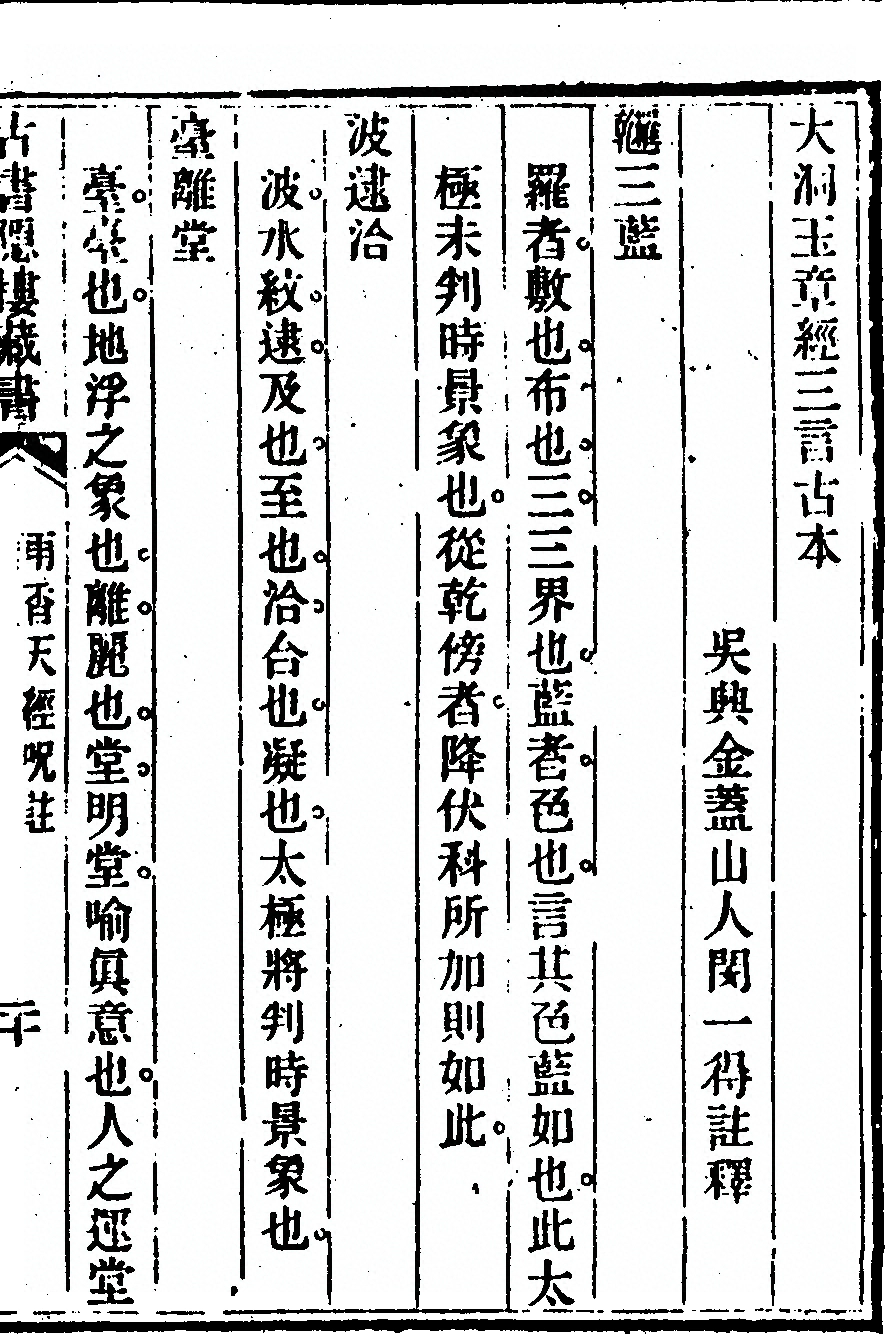 大洞玉章經三言古本
吳興金蓋山人閔一得註釋
三藍
羅者敷也布也三三界也藍者色也言其色藍如也此太
極未判時景象也從乾傍者降伏科所加則如此
波逮洽
波水紋逮及也至也洽台也凝也太極將判時景象也
臺離堂
臺臺也地浮之象也離麗也堂明堂喻眞意也人之逕堂
古書隱樓藏書
雨香天經呪註
二十